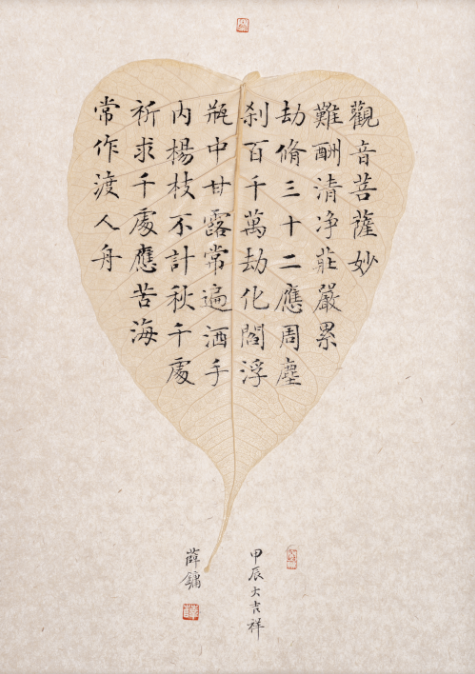 觀音菩薩妙
難酬清净莊嚴累
劫脩三十二應周塵
刹百千萬劫化閻浮
瓶中甘露常遍洒手
内楊枝不計秋千處
祈求千處應苦海
常作渡人舟
甲辰大吉祥
薛鏞